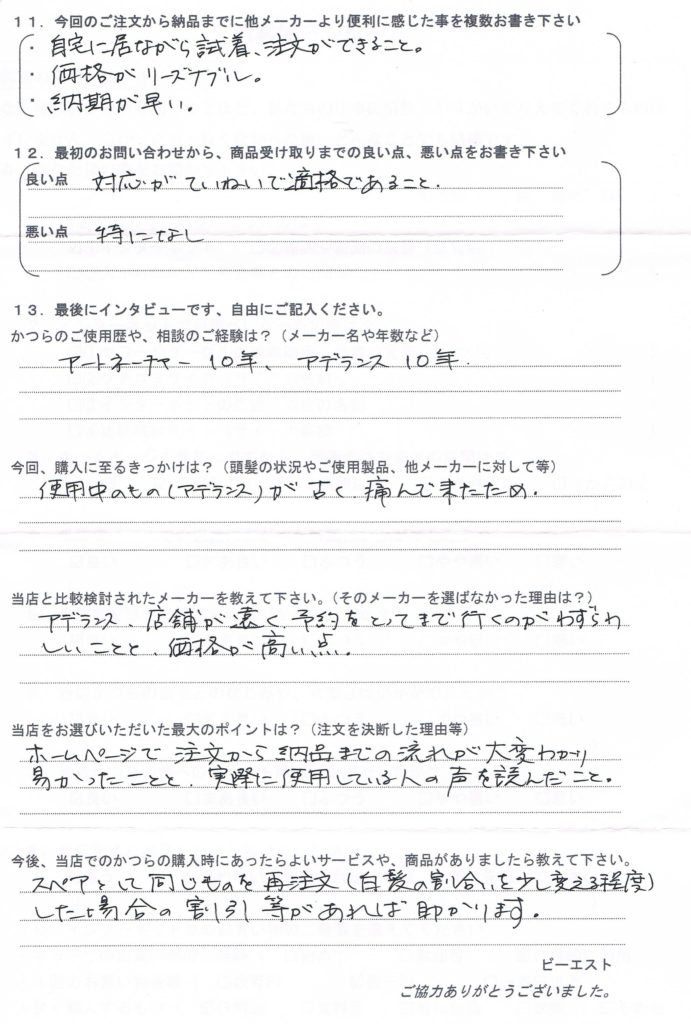 １１．今回のご注文から納品までに他メーカーより便利に感じた事を複数お書き下さい
・自宅に居ながら試着、注文ができること。
・価格がリーズナブル。
・納期が早い。
１２．最初のお問い合わせから、商品受け取りまでの良い点、悪い点をお書き下さい
良い点 対応がていねいで適格であること.
悪い点 特になし
１３．最後にインタビューです、自由にご記入ください。
かつらのご使用歴や、相談のご経験は？（メーカー名や年数など）
アートネーチャー 10年、アデランス 10年.
今回、購入に至るきっかけは？（頭髪の状況やご使用製品、他メーカーに対して等）
使用中のもの(アデランス)が古く、痛んで来たため。
当店と比較検討されたメーカーを教えて下さい。（そのメーカーを選ばなかった理由は？）
アデランス、店舗が遠く、予約をとってまで行くのがわずらわ
しいことと、価格が高い点.
当店をお選びいただいた最大のポイントは？（注文を決断した理由等）
ホームページで注文から納品までの流れが大変わかり
易かったことと、実際に使用している人の声を読んだこと。
今後、当店でのかつらの購入時にあったらよいサービスや、商品がありましたら教えて下さい。
スペアとして同じものを再注文(白髪の割合いを少し変える程度)
した場合の割引等があれば助かります。
ビーエスト
ご協力ありがとうございました。